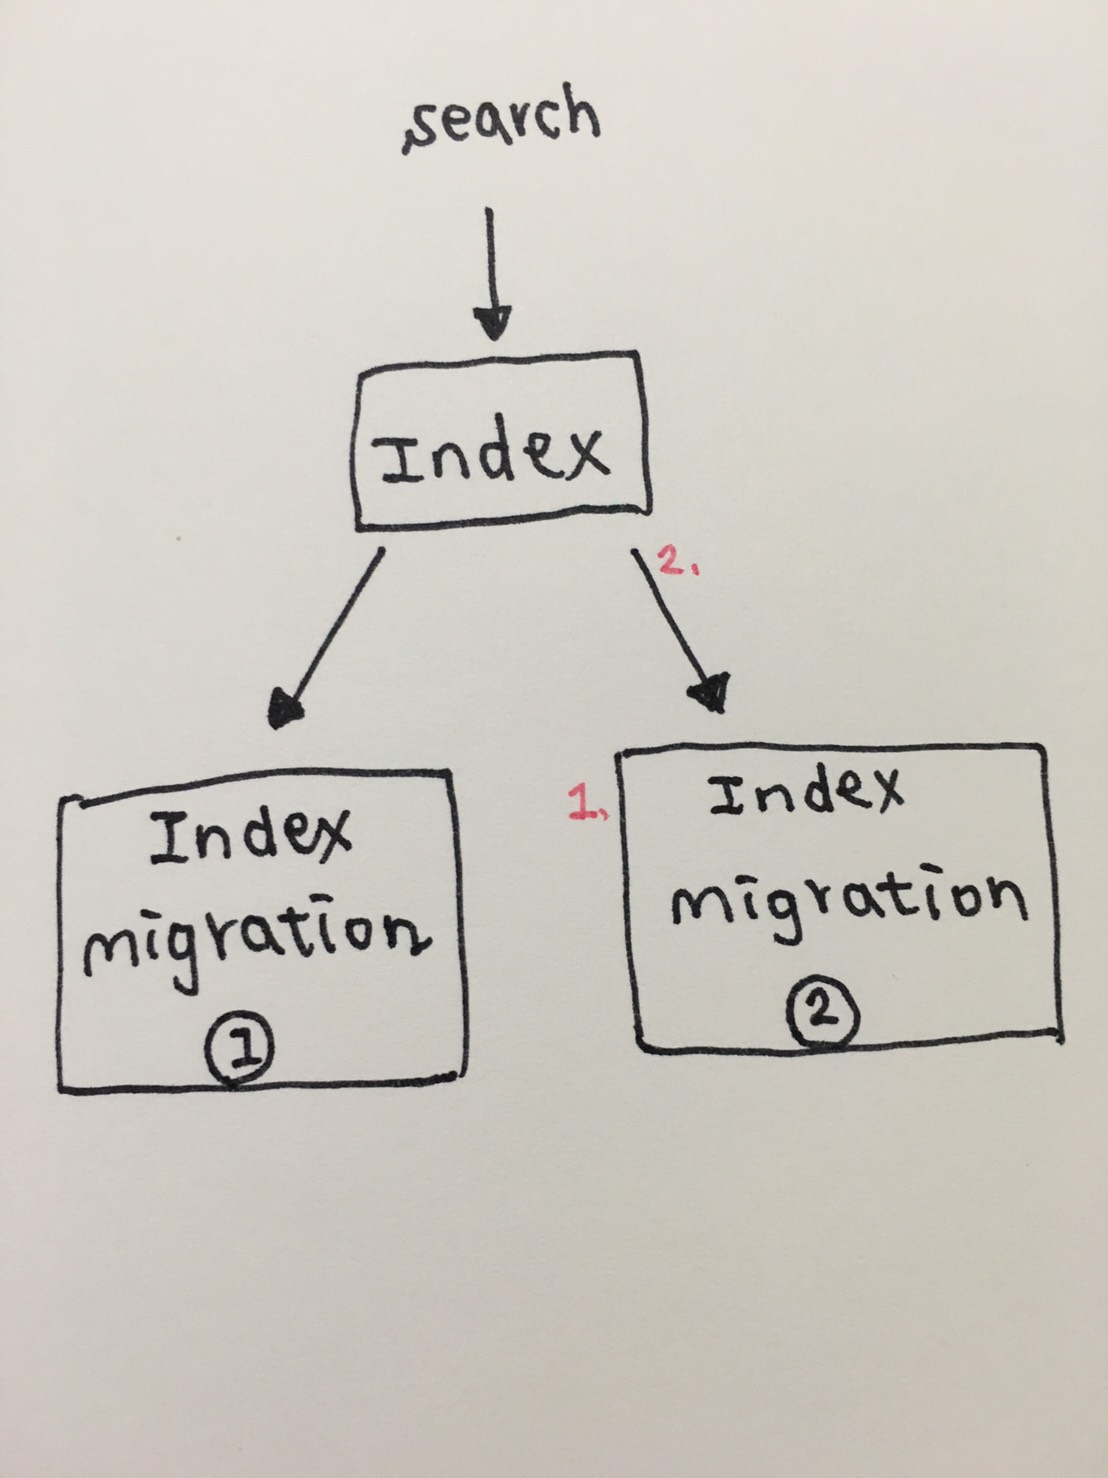 search
Index
2.
Index
migration
①
1.
Index
migration
②